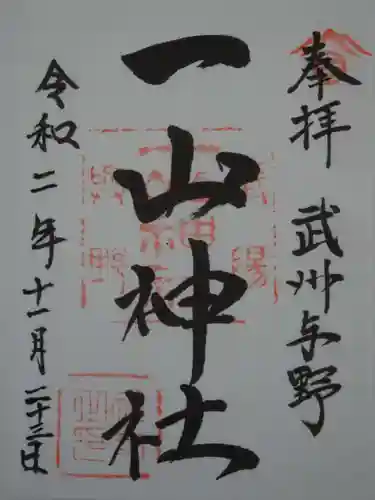 奉拝 武州与野
一山神社
令和二年十一月二十三日